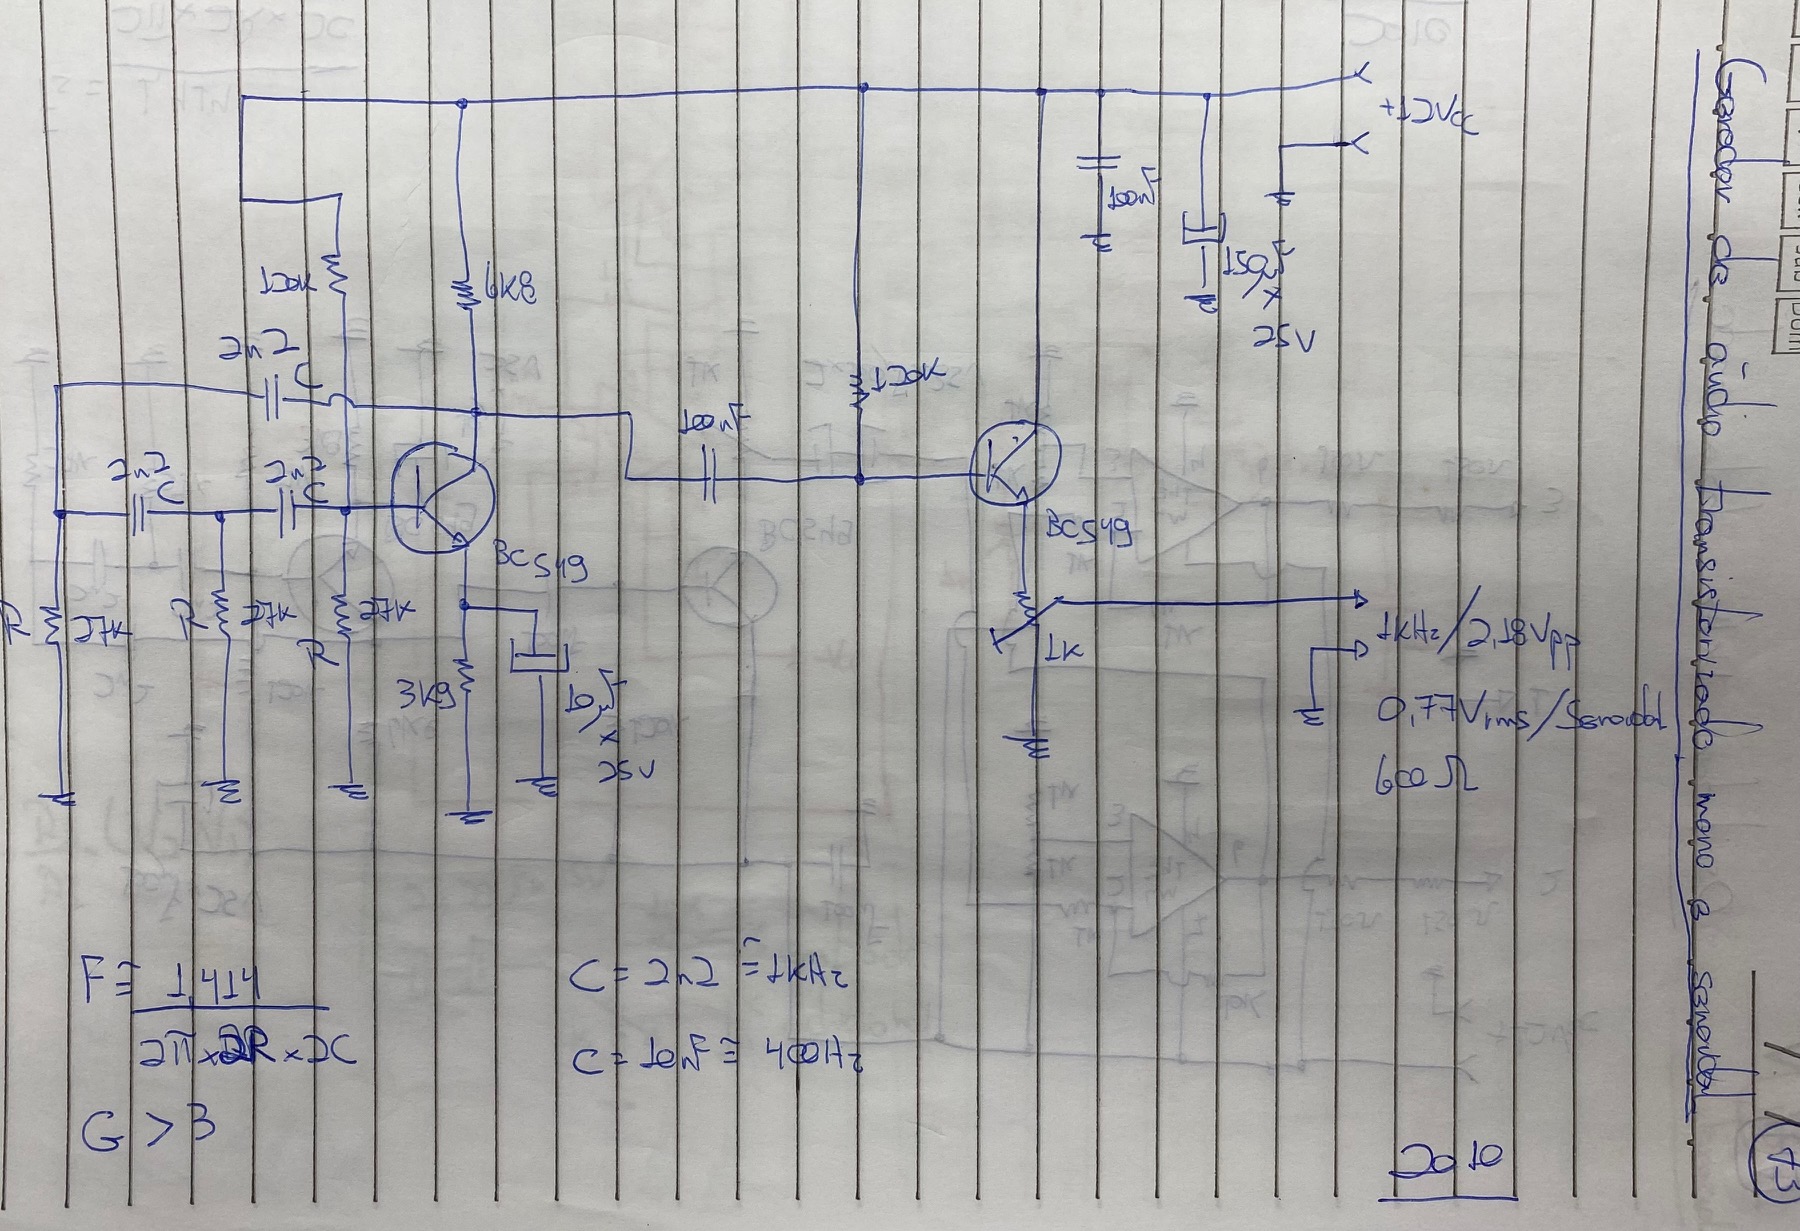 Gerador de áudio transistorizado mono e senoidal
73
+12Vcc
100nF
25V
120K
6K8
2n2
C
120K
100nF
2n2
C
2n2
C
BC549
BC549
R
27K
R
27K
27K
R
3K9
25V
1K
1KHz/2,18Vpp
0,77Vrms/Senoidal
600Ω
F≅ 1,414
2π×2R×2C
C = 2n2 ≅ 1KHz
C = 10nF ≅ 400Hz
G > 3
2010